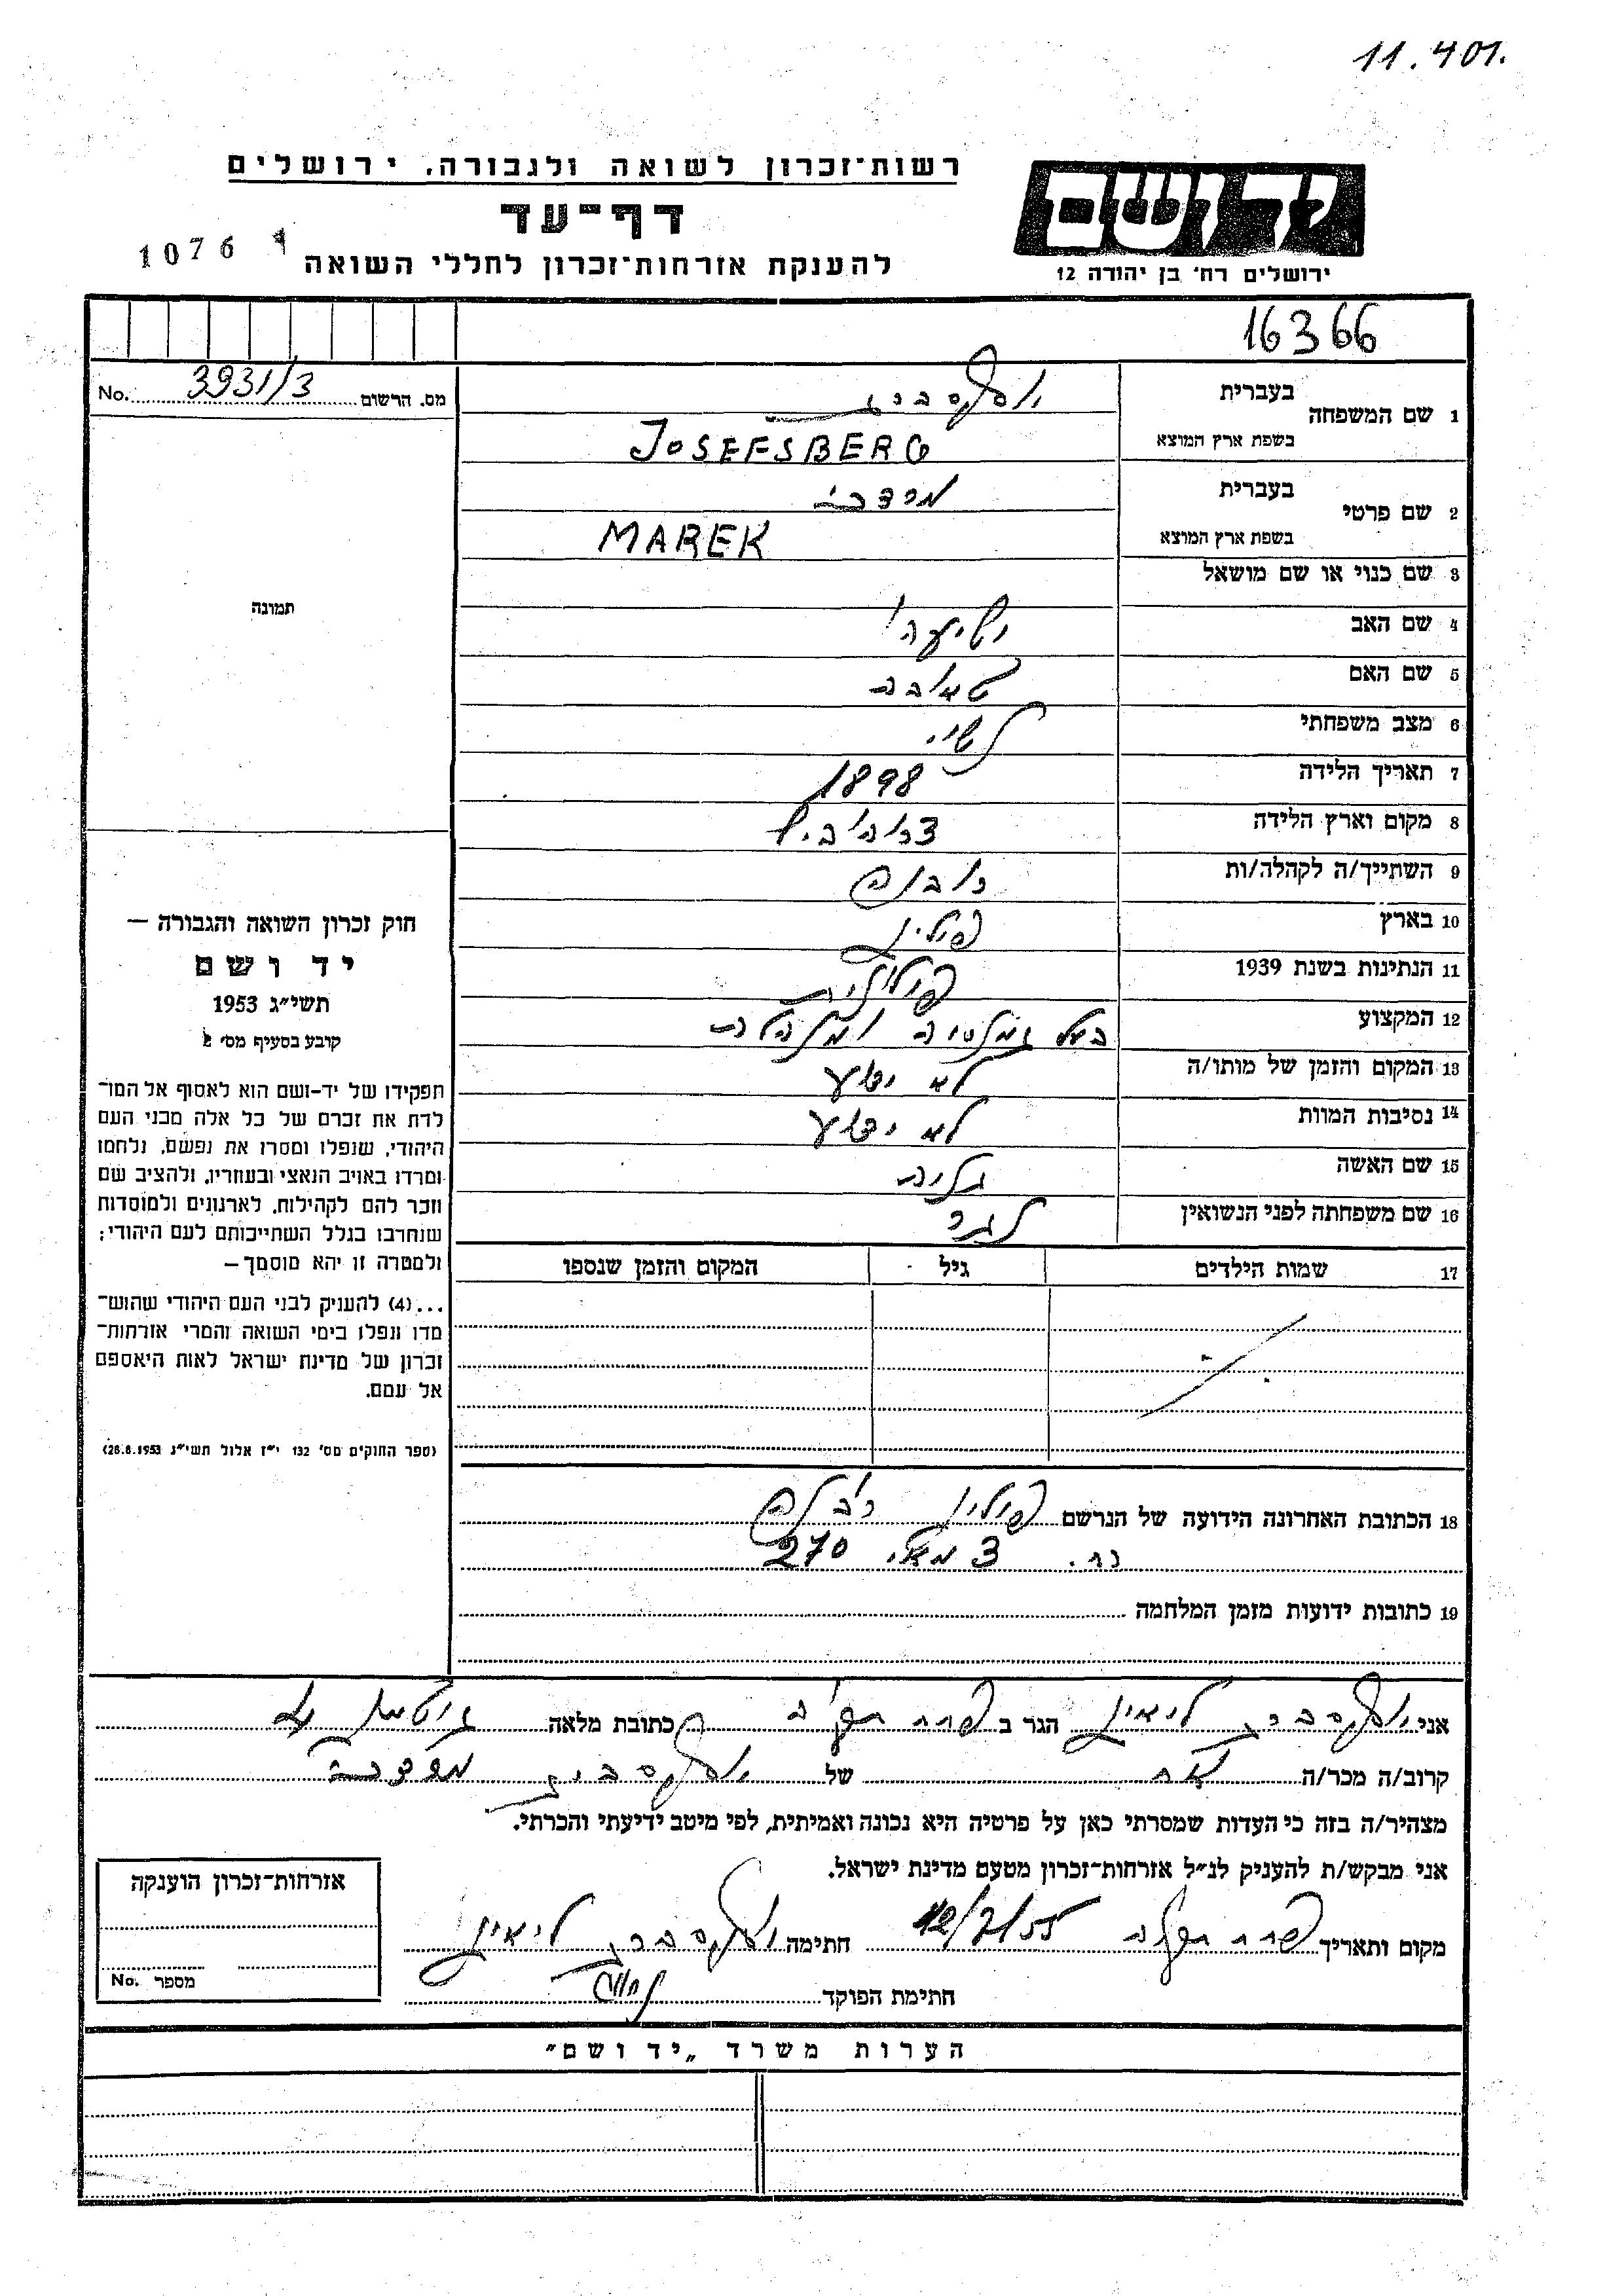 11.401.
רשות־זכרון לשואה ולגבורה, ירושלים
יד ושם
דף־עד
1076
להענקת אזרחות־זכרון לחללי השואה
ירושלים רח׳ בן יהודה 12
16366
No. 3931/3 מס. הרשום
1 שם המשפחה
בעברית יוספסברג
בשפת ארץ המוצא JOSEFSBERG
2 שם פרטי
בעברית מרדכי
בשפת ארץ המוצא MAREK
3 שם כנוי או שם מושאל
תמונה
4 שם האב ישיעהו
5 שם האם טאובה
6 מצב משפחתי נשוי
7 תאריך הלידה 1898
8 מקום וארץ הלידה דרוהוביץ
9 השתייך/ה לקהלה/ות
10 בארץ פולין
11 הנתינות בשנת 1939 פולנית
12 המקצוע בעל
13 המקום והזמן של מותו/ה לא ידוע
14 נסיבות המוות לא ידוע
15 שם האשה
16 שם משפחתה לפני הנשואין
17 שמות הילדים גיל המקום והזמן שנספו
חוק זכרון השואה והגבורה —
יד ושם
תשי״ג 1953
קובע בסעיף מס׳ 2
תפקידו של יד-ושם הוא לאסוף אל המו־
לדת את זכרם של כל אלה מבני העם
היהודי, שנפלו ומסרו את נפשם, נלחמו
ומרדו באויב הנאצי ובעוזריו, ולהציב שם
וזכר להם לקהילות, לארגונים ולמוסדות
שנחרבו בגלל השתייכותם לעם היהודי;
ולמטרה זו יהא מוסמך—
...(4) להעניק לבני העם היהודי שהוש־
מדו ונפלו בימי השואה והמרי אזרחות־
זכרון של מדינת ישראל לאות היאספם
אל עמם.
(ספר החוקים מס׳ 132 י״ז אלול תשי״ג 28.8.1953)
18 הכתובת האחרונה הידועה של הנרשם פולין
רח. 3 מאי 270
19 כתובות ידועות מזמן המלחמה
אני יוספסברג ליאון הגר ב פתח תקוה כתובת מלאה
קרוב/ה מכר/ה אח של יוספסברג מרדכי
מצהיר/ה בזה כי העדות שמסרתי כאן על פרטיה היא נכונה ואמיתית, לפי מיטב ידיעתי והכרתי.
אני מבקש/ת להעניק לנ״ל אזרחות־זכרון מטעם מדינת ישראל.
מקום ותאריך פתח תקוה 12/7/55 חתימה יוספסברג ליאון
חתימת הפוקד
אזרחות־זכרון הוענקה
מספר No.
הערות משרד „יד ושם"